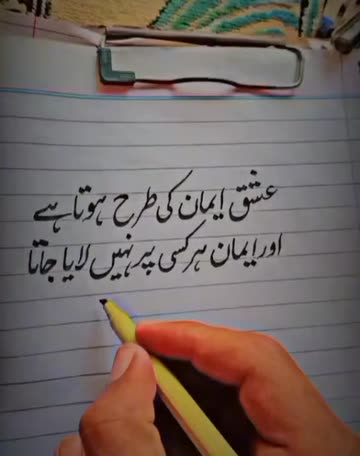 عشق ایمان کی طرح ہوتا ہے
اور ایمان ہر کسی پر نہیں لایا جاتا